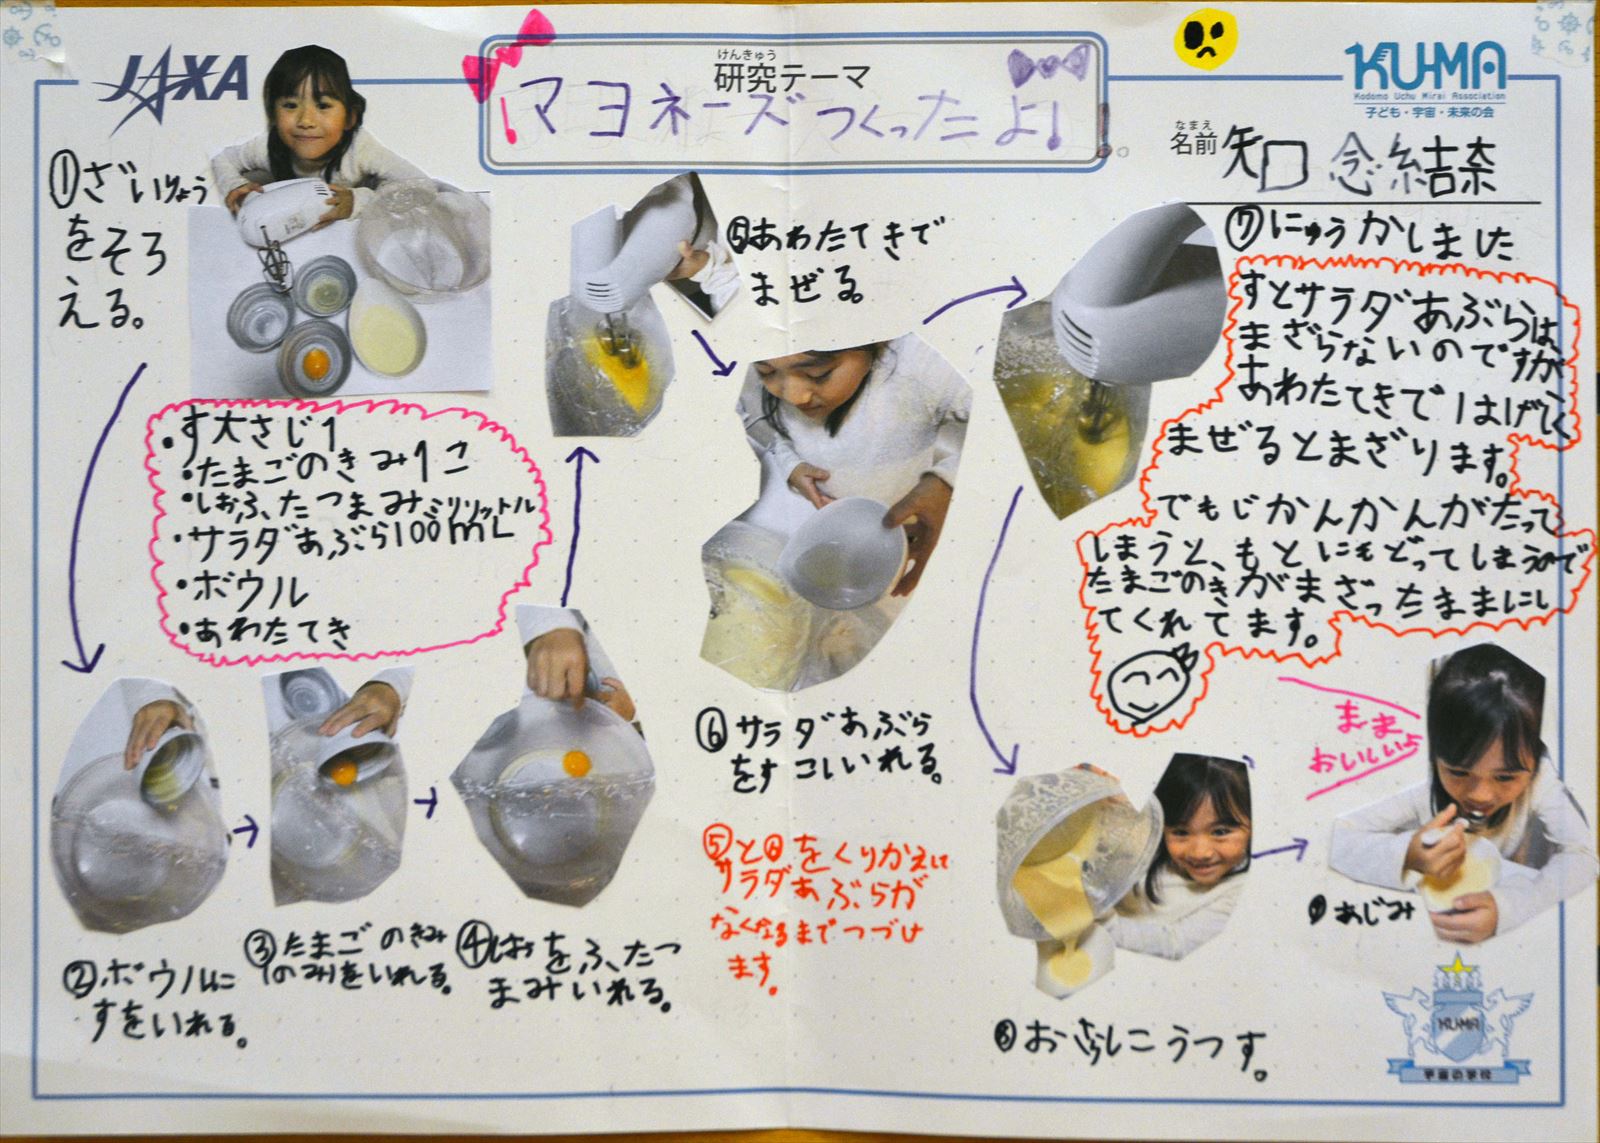 JAXA
けんきゅう
研究テーマ
！マヨネーズつくったよ！
KU-MA
Kodomo Uchu Mirai Association
子ども・宇宙・未来の会
なまえ
名前 知念結奈
①ざいりょう
をそろ
える。
・す大さじ1
・たまごのきみ1こ
・しおふたつまみ
ミリリットル
・サラダあぶら100mL
・ボウル
・あわたてき
②ボウルに
すをいれる。
③たまごのきみ
(のみ)をいれる。
④しおをふたつ
まみいれる。
⑤あわたてきで
まぜる。
⑥サラダあぶら
をすこしいれる。
⑤と⑥をくりかえして
サラダあぶらが
なくなるまでつづけ
ます。
⑦にゅうかしました
すとサラダあぶらは、
まざらないのですが
あわたてきではげしく
まぜるとまざります。
でもじかんかんがたって
しまうと、もとにもどってしまうので
たまごのきがまざったままにし
てくれてます。
⑧おさらにうつす。
まま
おいしいよ
⑨あじみ
KU-MA
宇宙の学校